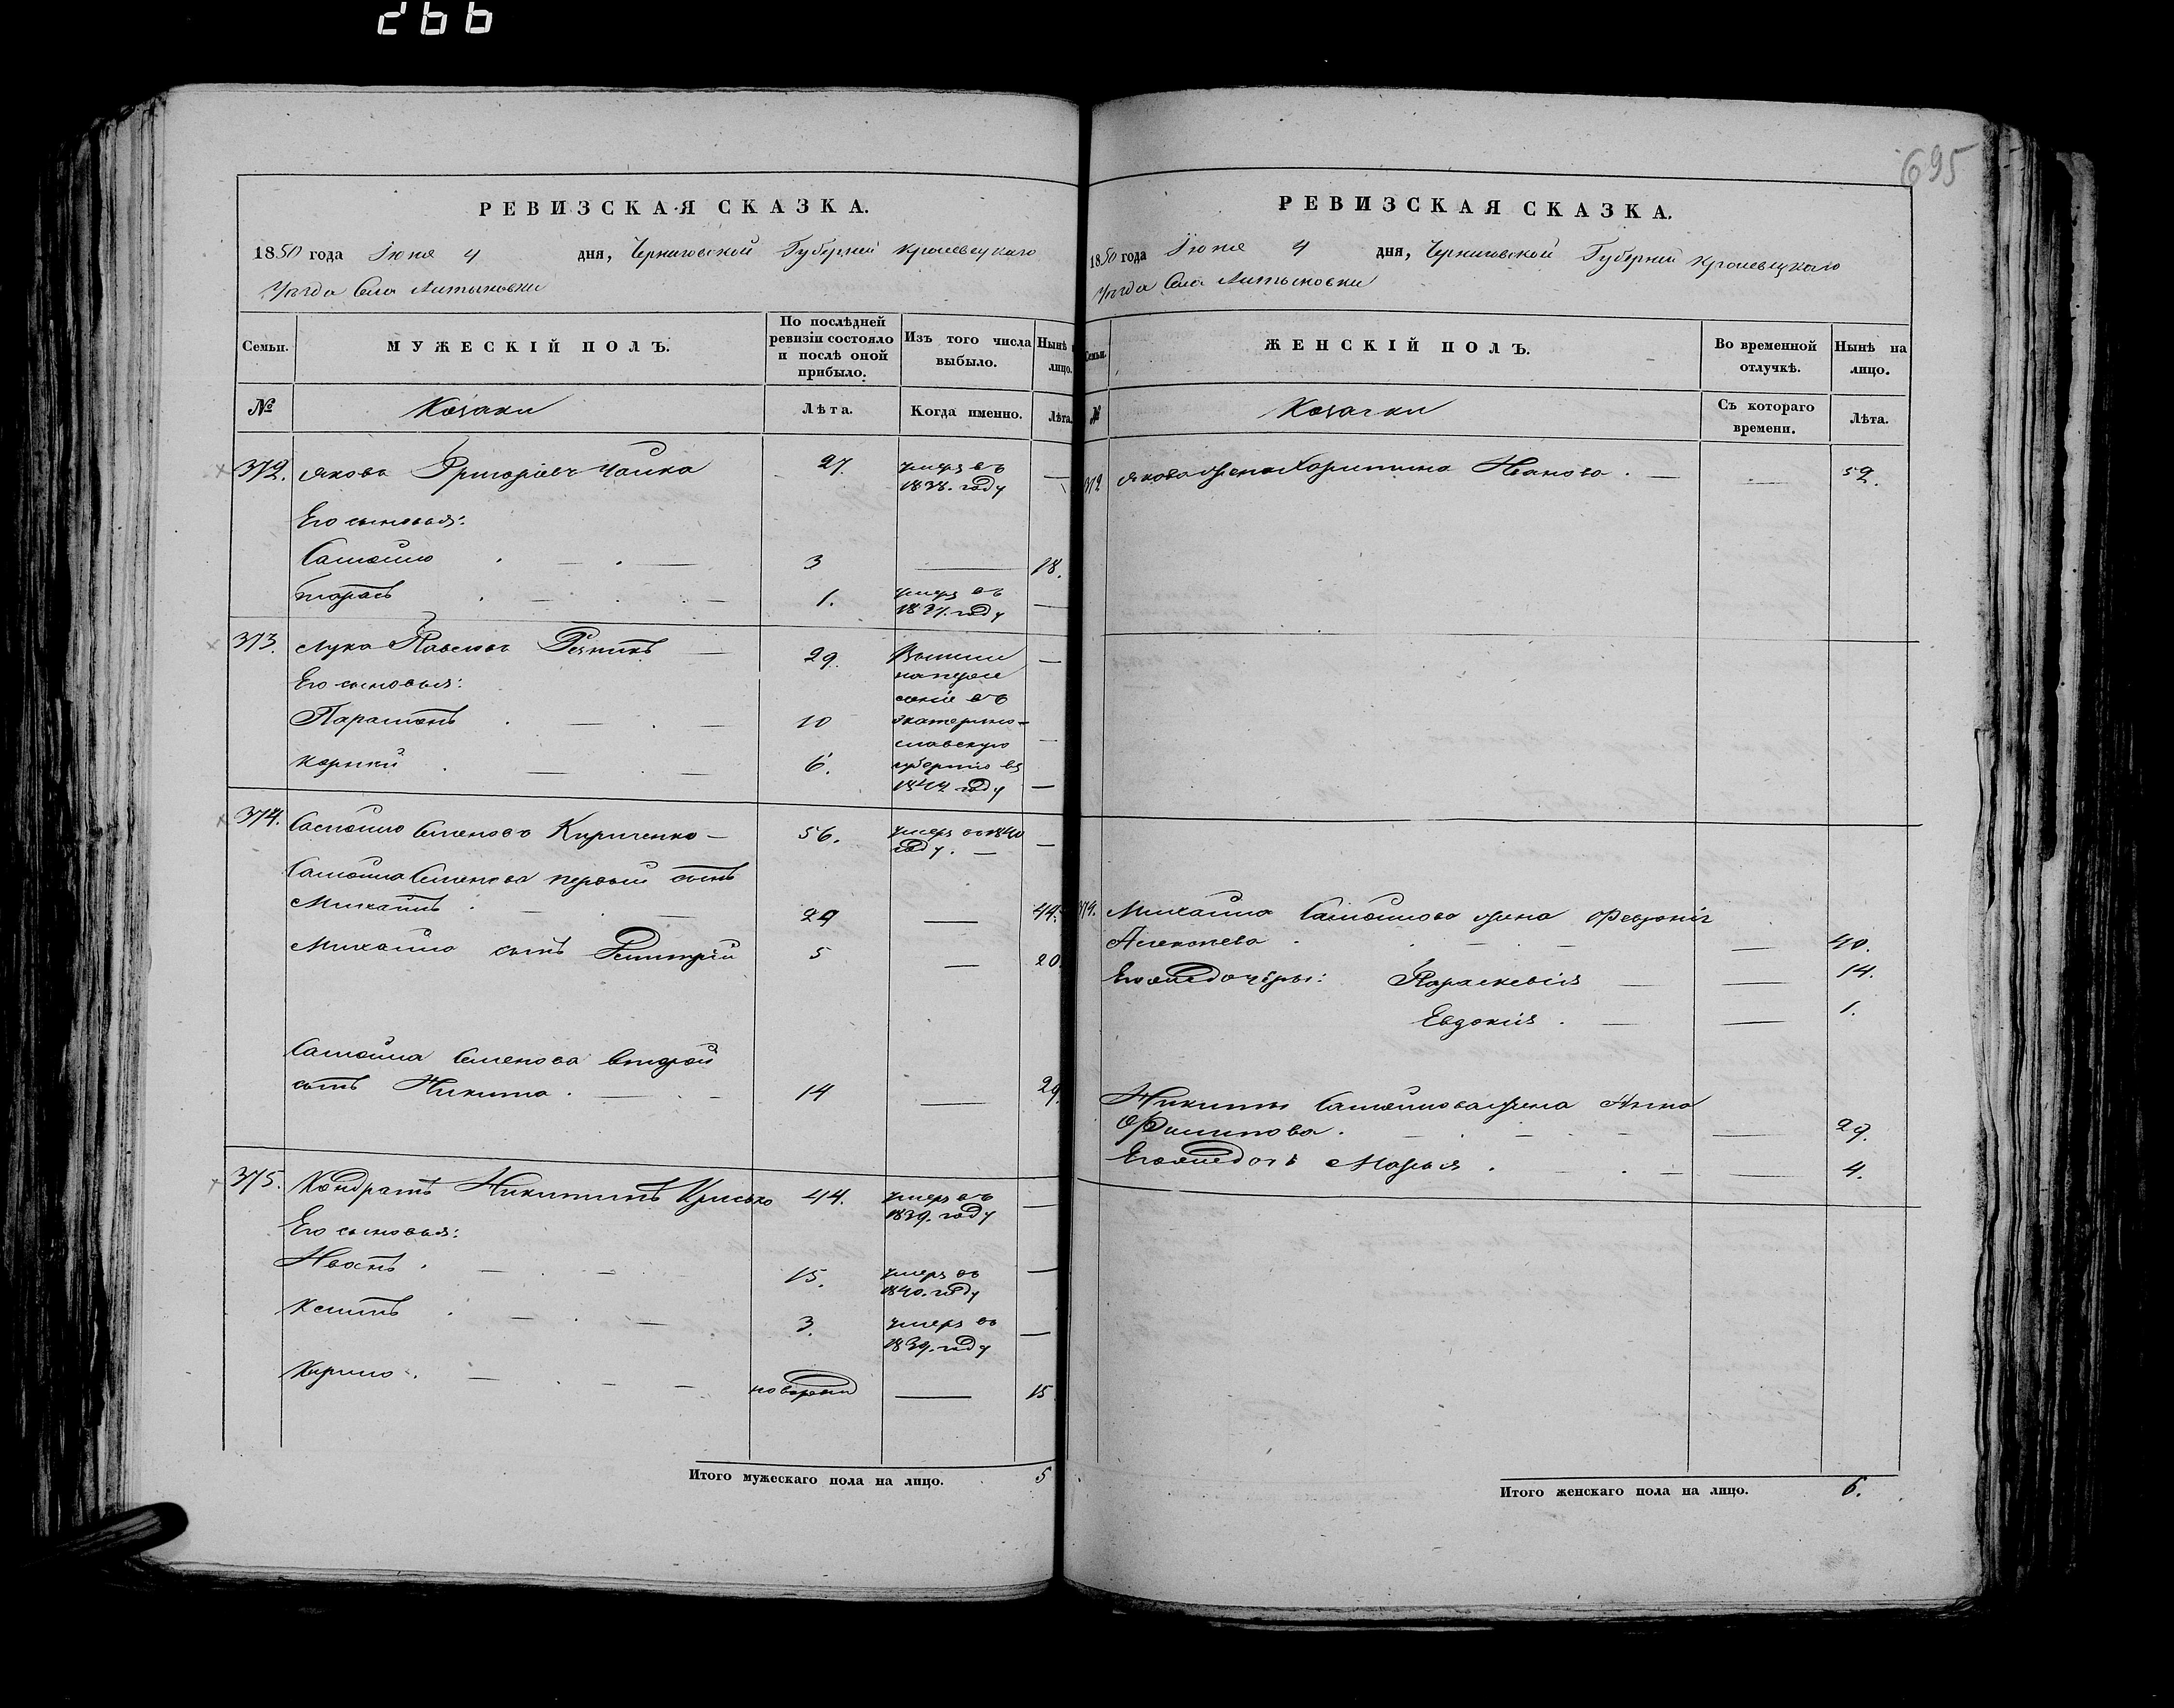 266
695
РЕВИЗСКАЯ СКАЗКА.
1850 года Іюня 4 дня, Черниговской Губерніи Кролевецкаго
Уѣзда Села
Семьи.
МУЖЕСКІЙ ПОЛЪ.
По послѣдней
ревизіи состояло
и послѣ оной
прибыло.
Изъ того числа
выбыло.
Нынѣ
лицо.
№
Козаки
Лѣта.
Когда именно.
Лѣта.
372. Яковъ Григорьевъ Чайка 27. умеръ въ
1838. году —
Его сыновья:
Самойло 3 — 18.
Тарасъ 1. умеръ въ
году —
373. Лука Павловъ 29. Вышли —
Его сыновья:
на пересе
леніе въ
Парамонъ 10 Екатерино-
славскую —
Корній 6. губернію въ
году —
374. Самойло Семеновъ Кириченко — 56. умеръ въ 1840
году. — —
Самойла Семенова первый сынъ
Михайлъ 29 — 44.
Михайла сынъ Дмитрій 5 — 20.
Самойла Семенова второй
сынъ Никита 14 — 29.
375. Кондратъ Никитинъ 44. умеръ въ
1839. году —
Его сыновья:
Иванъ 15. умеръ въ
1840. году —
3. умеръ въ
1839. году —
Кирило новорож — 15
Итого мужескаго пола на лицо. 5
РЕВИЗСКАЯ СКАЗКА.
1850 года Іюня 4 дня, Черниговской Губерніи Кролевецкаго
Уѣзда Села
Семьи.
ЖЕНСКІЙ ПОЛЪ.
Во временной
отлучкѣ.
Нынѣ на
лицо.
№
Козачки
Съ котораго
времени.
Лѣта.
372 Якова жена Харитина Иванова — 52.
374. Михайла Самойлова жена Февронія
Алексѣева — 40.
Его же дочери: Параскевія — 14.
Евдокія — 1.
Никиты Самойлова жена Анна
Филипова — 29.
Его же дочь Марья — 4.
Итого женскаго пола на лицо. 6.